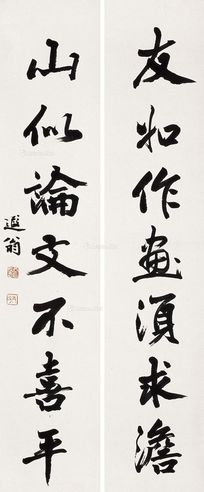 友如作画須求澹
山似論文不喜平
遯翁